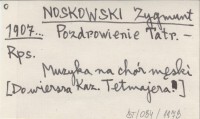 NOSKOWSKI Zygmunt
1907... Pozdrowienie Tatr. -
Rps.
Muzyka na chór męski
[Do wiersza Kaz. Tetmajera!]